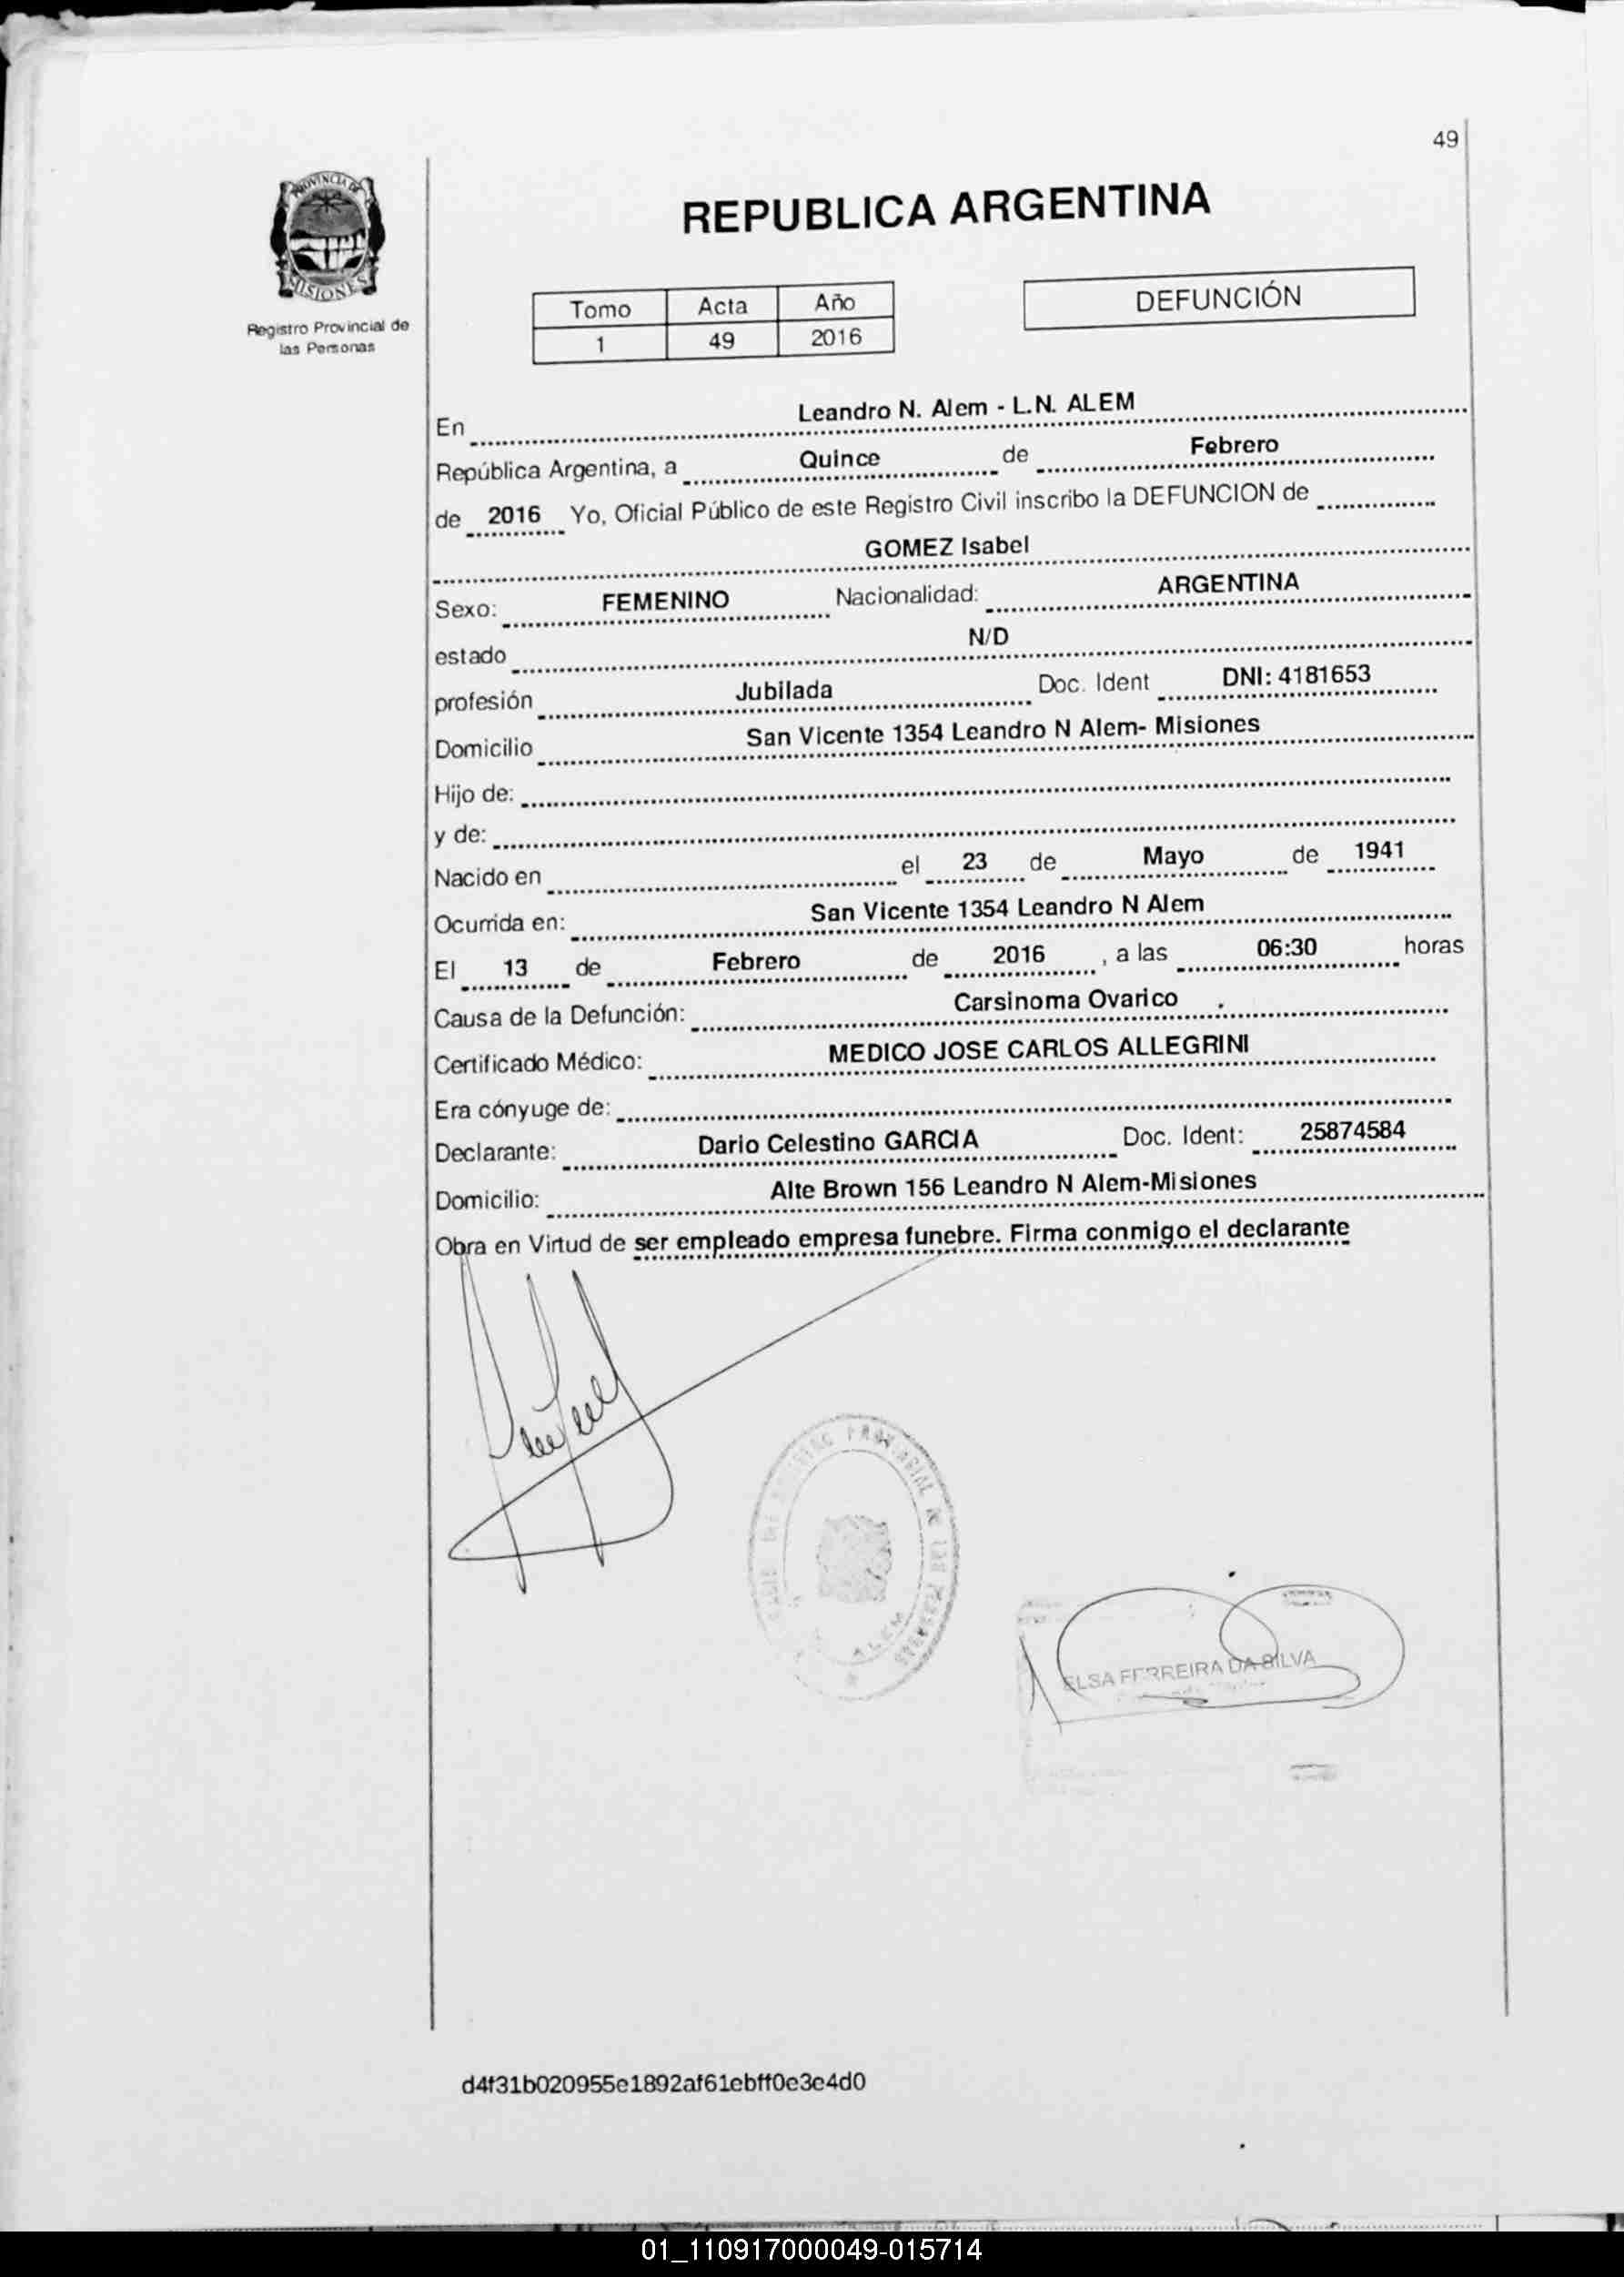 49
PROVINCIA DE
MISIONES
Registro Provincial de
las Personas
REPUBLICA ARGENTINA
Tomo Acta Año
1 49 2016
DEFUNCIÓN
En Leandro N. Alem - L.N. ALEM
República Argentina, a Quince de Febrero
de 2016 Yo, Oficial Público de este Registro Civil inscribo la DEFUNCION de
GOMEZ Isabel
Sexo: FEMENINO Nacionalidad: ARGENTINA
estado N/D
profesión Jubilada Doc. Ident DNI: 4181653
Domicilio San Vicente 1354 Leandro N Alem- Misiones
Hijo de:
y de:
Nacido en el 23 de Mayo de 1941
Ocurrida en: San Vicente 1354 Leandro N Alem
El 13 de Febrero de 2016 , a las 06:30 horas
Causa de la Defunción: Carsinoma Ovarico
Certificado Médico: MEDICO JOSE CARLOS ALLEGRINI
Era cónyuge de:
Declarante: Dario Celestino GARCIA Doc. Ident: 25874584
Domicilio: Alte Brown 156 Leandro N Alem-Misiones
Obra en Virtud de ser empleado empresa funebre. Firma conmigo el declarante
PROVINCIAL DE LAS PERSONAS
ALEM
ELSA FERREIRA DA SILVA
d4f31b020955e1892af61ebff0e3e4d0
01_110917000049-015714